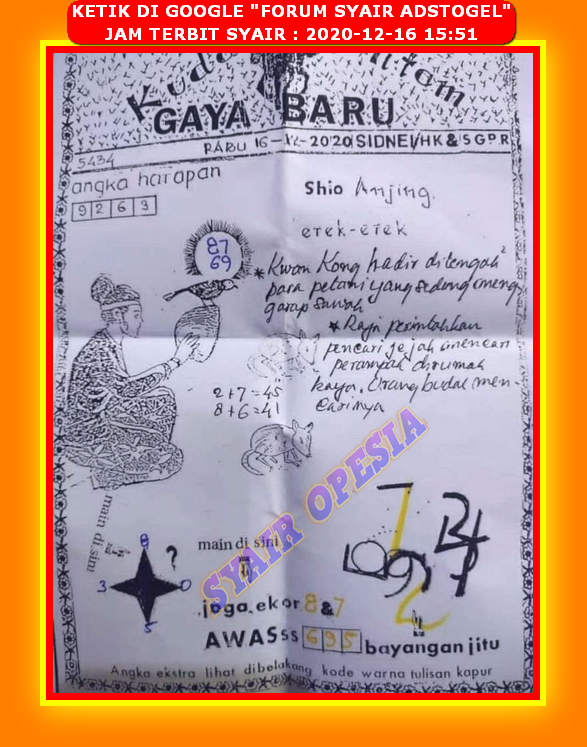 KETIK DI GOOGLE "FORUM SYAIR ADSTOGEL"
JAM TERBIT SYAIR : 2020-12-16 15:51
GAYA BARU
RABU 16-XII-2020 SIDNEI/HK & SGPR
5434
angka harapan
9 2 6 3
Shio Anjing.
erek-erek
87
69
* Kwan Kong hadir ditengah²
para petani yang sedang meng
garap sawah
* Raja perintahkan
pencari jejak mencari
perampok dirumah
kaya. Orang budal men-
carinya
2+7=45
8+6=41
SYAIR OPESIA
main di sini
8
?
3
0
5
main di sini
joga.ekor 8 & 7
AWASss 6 3 5 bayangan jitu
Angka ekstra lihat dibelakang kode warna tulisan kapur